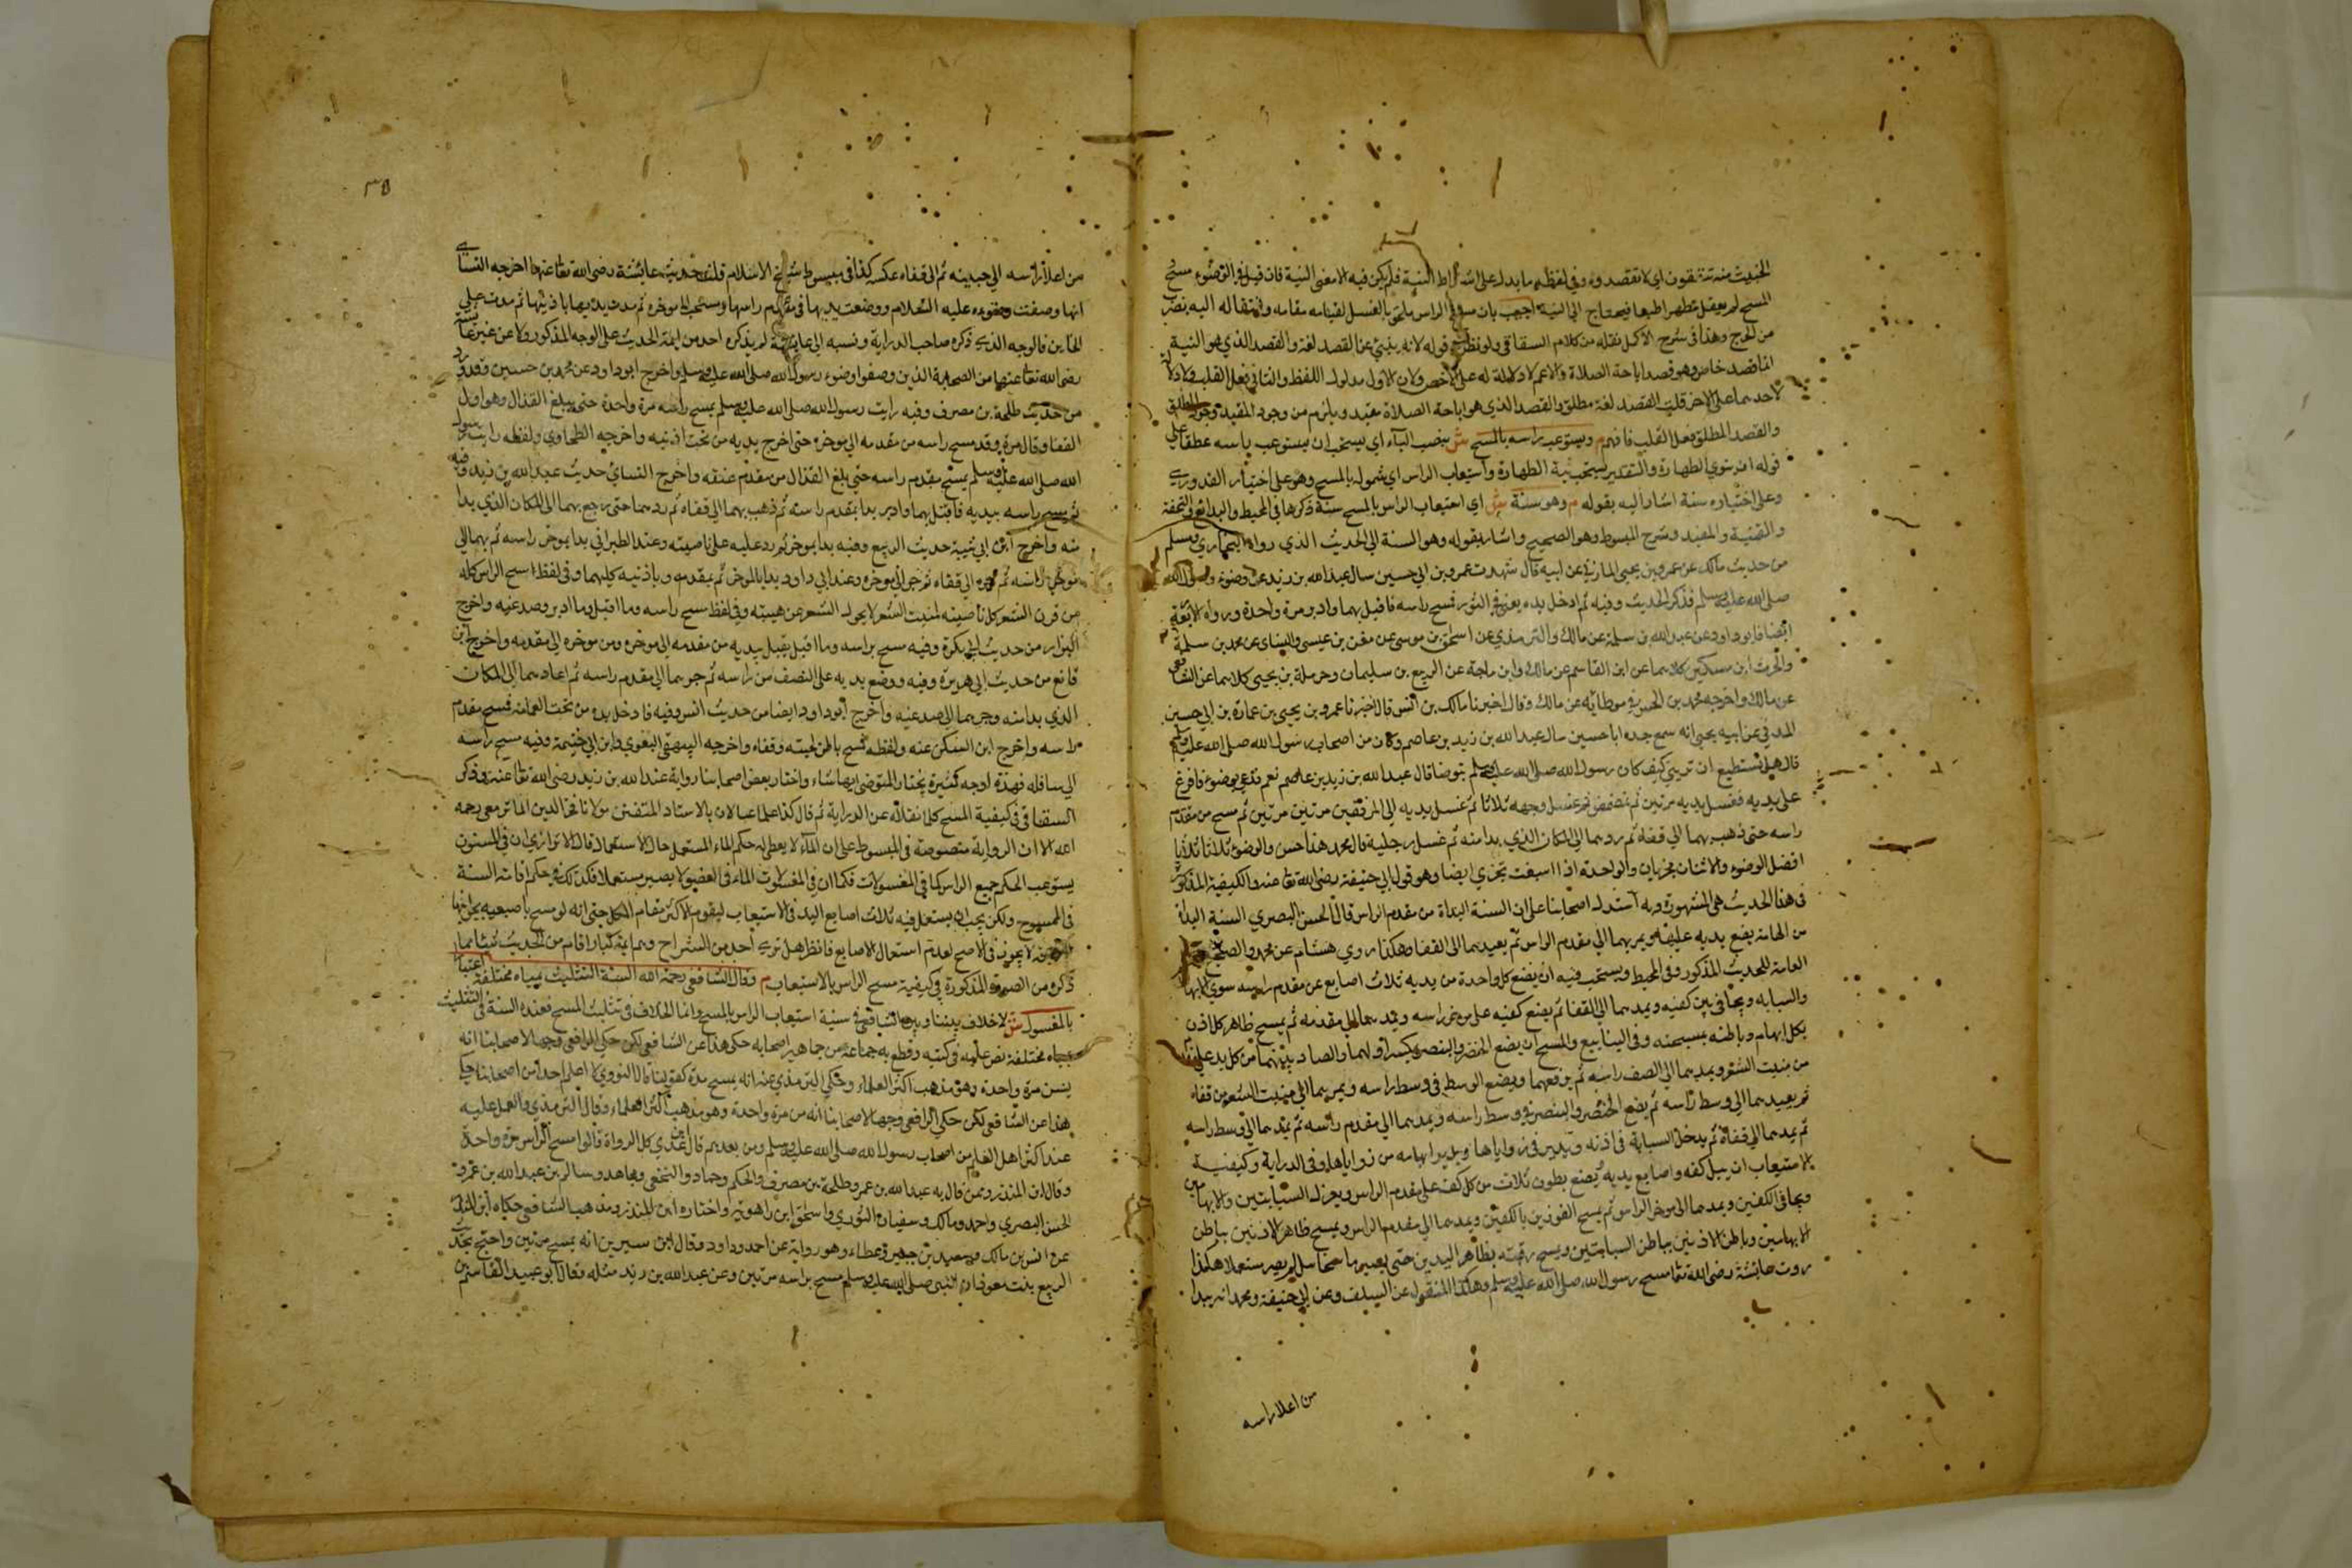 الخبيث منه تنفقون اي لا تقصدوه وفي لفظه ما يدل على اشتراط النية فلم يكن فيه الا معنى النية فان قيل في الوضوء مسح
المسح لم يعقل مطهرا طبعا فيحتاج الى النية اجيب بان مسح الراس ملحق بالغسل لقيامه مقامه وانتقاله اليه بضرب
من الحرج وهذا في شرح الاكمل نقله من كلام السغناقي ولو نظر قوله لانه ينبئ عن القصد لغة والقصد الذي هو النية
انما قصد خاص وهو قصد اباحة الصلاة والاعم لا دلالة له على الاخص ولان الاول مدلول اللفظ والثاني فعل القلب ولا دلالة
لاحدهما على الاخر قلت القصد لغة مطلق والقصد الذي هو اباحة الصلاة مقيد ويلزم من وجود المقيد وجود المطلق
والقصد المطلق فعل القلب فافهم م ويستوعب راسه بالمسح ش بنصب الباء اي يستحب ان يستوعب راسه عطفا على
قوله ان ينوي الطهارة والتقدير يستحب نية الطهارة واستيعاب الراس اي شموله بالمسح وهو على اختيار القدوري
وعلى اختياره سنة اشار اليه بقوله م وهو سنة ش اي استيعاب الراس بالمسح سنة ذكرها في المحيط والبدايع والتحفة
والقنية والمفيد وشرح المبسوط وهو الصحيح واشار بقوله وهو السنة الى الحديث الذي رواه البخاري ومسلم
من حديث مالك عن عمرو بن يحيى المازني عن ابيه قال شهدت عمرو بن ابي حسين سال عبد الله بن زيد عن وضوء رسول الله
صلى الله عليه وسلم فذكر الحديث وفيه ثم ادخل يده يعني في التور فمسح راسه فاقبل بهما وادبر مرة واحدة ورواه الاربعة
ايضا فابو داود عن عبد الله بن سلمة عن مالك والترمذي عن اسحق بن موسى عن معن بن عيسى والنساى عن محمد بن سلمة
والحرث ابن مسكين كلاهما عن ابن القاسم عن مالك وابن ماجة عن الربيع بن سليمان وحرملة بن يحيى كلاهما عن الشافعي
عن مالك واخرجه محمد بن الحسن في موطائه عن مالك وقال اخبرنا مالك بن انس قال اخبرنا عمرو بن يحيى بن عمارة بن ابي حسين
المدني عن ابيه يحيى انه سمع جده ابا حسين سال عبد الله بن زيد بن عاصم وكان من اصحاب رسول الله صلى الله عليه وسلم
قال هل تستطيع ان تريني كيف كان رسول الله صلى الله عليه وسلم يتوضا قال عبد الله بن زيد بن عاصم نعم فدعى بوضوء فافرغ
على يديه فغسل يديه مرتين ثم تمضمض ثم غسل وجهه ثلاثا ثم غسل يديه الى المرفقين مرتين مرتين ثم مسح من مقدم
راسه حتى ذهب بهما الى قفاه ثم ردهما الى المكان الذي بدا منه ثم غسل رجليه قال محمد هذا حسن والوضوء ثلاثا ثلاثا
افضل الوضوء والاثنان يجزيان والواحدة اذا اسبغت تجزي ايضا وهو قول ابي حنيفة رضي الله تعا عنه والكيفية المذكورة
في هذا الحديث هي المشهورة وبه استدل اصحابنا على ان السنة البداة من مقدم الراس قال الحسن البصري السنة البداة
من الهامة يضع يديه عليها ويمر بهما الى مقدم الراس ثم يعيدهما الى القفا وهكذا روي هشام عن محمد والصحيح
العامة للحديث المذكور وفي المحيط ويستحب فيه ان يضع كل واحدة من يديه ثلاث اصابع عن مقدم راسه سوى الابهام
والسبابة ويجافي بين كفيه ويمدهما الى القفا ثم يضع كفيه على مؤخر راسه ويمدهما الى مقدمه ثم يمسح ظاهر كل اذن
بكل ابهام وباطنه بمسبحته وفي الينابيع والمسح ان يضع الخنصر والبنصر بكسر اولهما والصاد بينهما من كل يد على
من منبت الشعر ويمدهما الى الصف راسه ثم يرفعهما ويضع الوسط في وسط راسه ويمر بهما الى منبت الشعر من قفاه
ثم يعيدهما الى وسط راسه ثم يضع الخنصر والبنصر في وسط راسه ويمدهما الى مقدم راسه ثم يمدهما الى وسط راسه
ثم يمدهما الى قفاه ثم يدخل السبابة في اذنه ويديرفي زواياها ويدير ابهامه من زواياها وفي الدراية وكيفية
الاستيعاب ان يبل كفه واصابع يديه يضع بطون ثلاث من كل كف على مقدم الراس ويعزل السبابتين والابهامين
ويجافي الكفين ويمدهما الى موخر الراس ثم يمسح الفودين بالكفين ويمدهما الى مقدم الراس ويمسح ظاهر الاذنين بباطن
الابهامين وباطن الاذنين بباطن السبابتين ويمسح رقبته بظاهر اليدين حتى يصير ماسحا ببلل لم يصر مستعملا هكذا
روت عائشة رضي الله تعا مسح رسول الله صلى الله عليه وسلم وهكذا المنقول عن السلف وعن ابي حنيفة ومحمد انه يبدا
من اعلا راسه
٣٥
من اعلا راسه الى جبينه ثم الى قفاه عكسه كذا في مبسوط شيخ الاسلام قلت حديث عائشة رضي الله تعا عنها اخرجه النسائي
انها وصفت وضوءه عليه السلام ووضعت يديها في مقدم راسها ومسحت الى موخره ثم مدت يديها باذنيها ثم مدت على
الخدين فالوجه الذي ذكره صاحب الدراية ونسبه الى عائشة لم يذكره احد من ايمة الحديث على الوجه المذكور ولا عن غير عائشة
رضي الله تعا عنها من الصحابة الذين وصفوا وضوء رسول الله صلى الله عليه وسلم واخرج ابو داود عن محمد بن حسين وقد ورد
من حديث طلحة بن مصرف وفيه رايت رسول الله صلى الله عليه وسلم يمسح راسه مرة واحدة حتى يبلغ القذال وهو اول
القفا وقال مرة وقد مسح راسه من مقدمه الى موخره حتى اخرج يديه من تحت اذنيه واخرجه الطحاوي ولفظه رايت رسول
الله صلى الله عليه وسلم يمسح مقدم راسه حتى بلغ القذال من مقدم عنقه واخرج النسائي حديث عبد الله بن زيد وفيه
ثم مسح راسه بيديه فاقبل بهما وادبر بدا بمقدم راسه ثم ذهب بهما الى قفاه ثم ردهما حتى رجع بهما الى المكان الذي بدا
منه واخرج ابن ابي شيبة حديث الربيع وفيه بدا بموخره ثم رد عليه على ناصيته وعند الطبراني بدا بموخر راسه ثم بهما الى
موخر راسه ثم الى قفاه ثم جر الى موخره وعند ابي داود يدا بالموخر ثم بمقدمه وباذنيه كليهما وفي لفظ مسح الراس كله
من قرن الشعر كل ناصيته لمنبت الشعر لا يحرك الشعر عن هيبته وفي لفظ مسح راسه وما اقبل وما ادبر وصدغيه واخرج
البزار من حديث ابي بكرة وفيه مسح براسه وما اقبل يقبل بيديه من مقدمه الى موخره ومن موخره الى مقدمه واخرج ابن
قانع من حديث ابي هريرة وفيه ووضع يديه على النصف من راسه ثم جرهما الى مقدم راسه ثم اعادهما الى المكان
الذي بدا منه وجرهما الى صدغيه واخرج ابو داود ايضا من حديث انس وفيه فادخل يده من تحت العمامة فمسح مقدم
راسه واخرج ابن السكن عنه ولفظه فمسح باطن لحيته وقفاه واخرجه البيهقي البغوي وابن ابي خيثمة وفيه مسح راسه
الى سافله فهذه اوجه كثيرة يختار المتوضي ايها شاء واختار بعض اصحابنا رواية عبد الله بن زيد رضي الله تعا عنه وذكر
السغناقي في كيفية المسح كلها نقلاه عن الدراية ثم قال كذا علمنا عيالان بالاستاد المتقن مولانا فخر الدين الماترمعي رحمه
الله الا ان الرواية منصوصة في المبسوط على ان الماء لا يعطى له حكم الماء المستعمل حال الاستعمال قال الا ترى ان في المسنون
يستوعب الحكم جميع الراس كما في المغسولات فكما ان في المغسولات الماء في العضو لا يصير مستعملا فكذلك في حكم اقامة السنة
في الممسوح ولكن يجب ان يستعمل فيه ثلاث اصابع اليد في الاستيعاب ليقوم الاكثر مقام الكل حتى انه لو مسح باصبعيه بجوانبها
لا يجوز في الاصح لعدم استعمال الاصابع فانظر هل ترى احد من الشراح وهم ايمة كبار اقام من الحديث شيئا مما
ذكره من الصورة المذكورة في كيفية مسح الراس بالاستيعاب م وقال الشافعي رحمه الله السنة التثليث بمياه مختلفة اعتبارا
بالمغسول ش لا خلاف بيننا وبين الشافعي في سنية استيعاب الراس بالمسح وانما الخلاف في تثليث المسح فعنده السنة في التثليث
بمياه مختلفة نص عليه في كتبه وقطع به جماعة من جماهير اصحابه حكي هذا عن الشافعي لكن حكي الرافعي وجها لاصحابنا انه
يسن مرة واحدة وهو مذهب اكثر العلماء وحكي الترمذي عنه انه يمسح مرة كقولنا قال النووي لا اعلم احدا من اصحابنا حكى
هذا عن الشافعي لكن حكي الرافعي وجها لاصحابنا انه من مرة واحدة وهو مذهب اكثر العلماء وقال الترمذي والعمل عليه
عند اكثر اهل العلم من اصحاب رسول الله صلى الله عليه وسلم ومن بعدهم قال ابن عدي كل الرواة قالوا مسح الراس مرة واحدة
وقال ابن المنذر وممن قال به عبد الله بن عمر وطلحة بن مصرف والحكم وحماد والنخعي ومجاهد وسالم بن عبد الله بن عمر و
الحسن البصري واحمد ومالك وسفيان الثوري واسحاق ابن راهويه واختاره ابن المنذر ومذهب الشافعي حكاه ابن المنذر
عن انس بن مالك وسعيد بن جبير وعطاء وهو رواية عن احمد وداود وقال ابن سيرين انه يمسح مرتين واحتج بحديث
الربيع بنت معوذ ان النبي صلى الله عليه وسلم مسح براسه مرتين وعن عبد الله بن زيد مثله وقال ابو عبيد القاسم بن